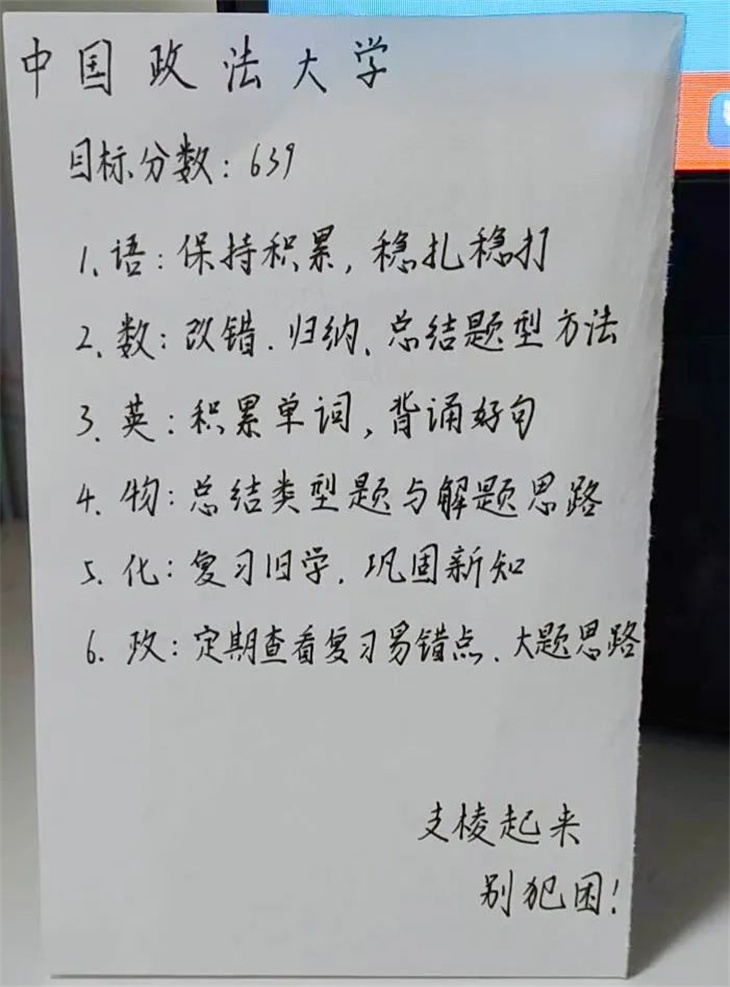 中国政法大学
目标分数：639
1、语：保持积累，稳扎稳打
2、数：改错、归纳、总结题型方法
3、英：积累单词，背诵好句
4、物：总结类型题与解题思路
5、化：复习旧学，巩固新知
6、政：定期查看复习易错点、大题思路
支棱起来
别犯困！